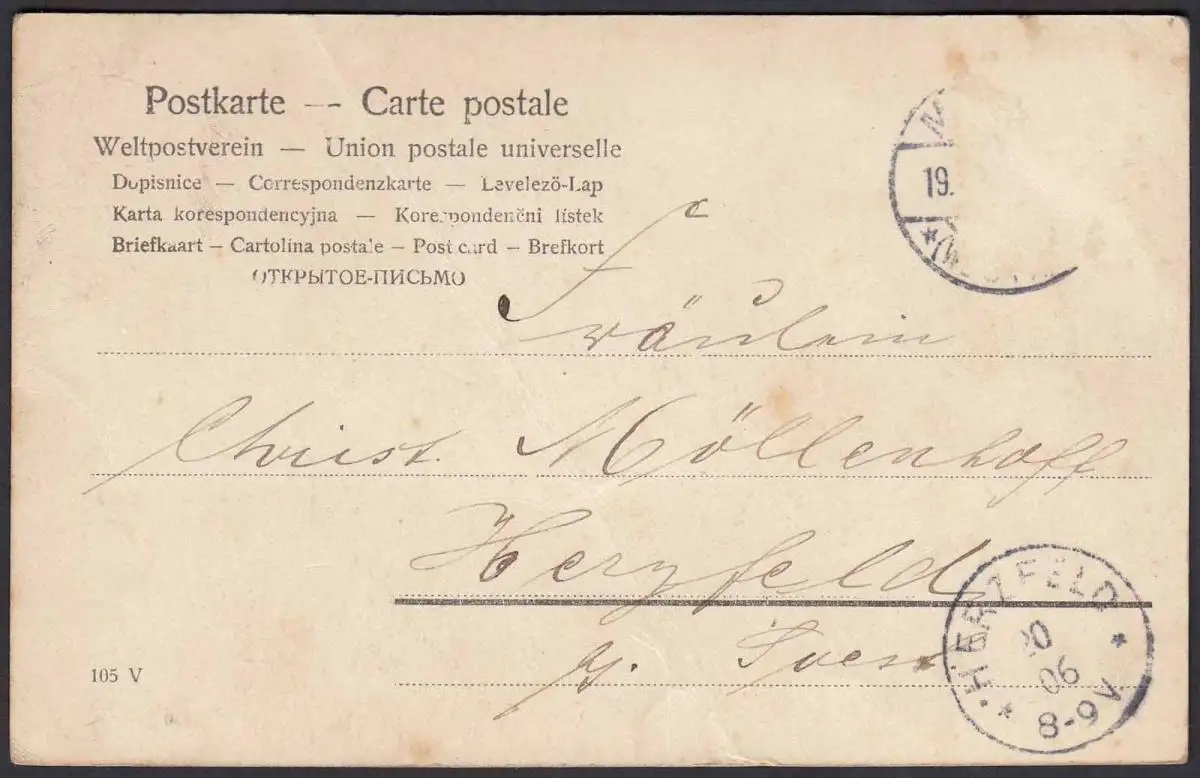 Postkarte — Carte postale
Weltpostverein — Union postale universelle
Dopisnice — Correspondenzkarte — Levelező-Lap
Karta korespondencyjna — Korespondenční lístek
Briefkaart — Cartolina postale — Post card — Brefkort
ОТКРЫТОЕ-ПИСЬМО
19.
Fräulein
Christ. Möllenhoff
Herzfeld
HERZFELD
20
06
8-9V
105 V